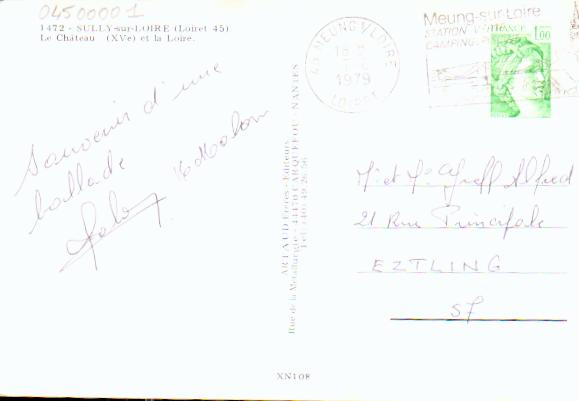 04500001
1472 - SULLY-sur-LOIRE (Loiret 45)
Le Château (XVe) et la Loire.
Souvenir d'une
ballade
45 MEUNG S/ LOIRE
18
1979
LOIRET
Meung-sur-Loire
STATION
CAMPING
FRANCE
1,00
ARTAUD Frères - Editeurs
Rue de la Métallurgie - 44470 CARQUEFOU - NANTES
Tél. (40) 49.26.56
M. et Me Greff Alfred
21 Rue Principale
EZTLING
57
XN108